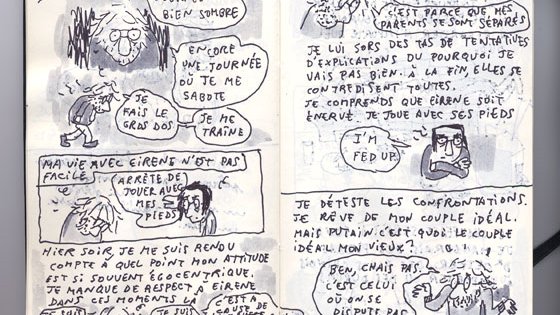 BIEN SOMBRE
ENCORE
UNE JOURNÉE
OÙ JE ME
SABOTE
JE
FAIS LE
GROS DOS
JE ME
TRAÎNE
MA VIE AVEC EIRENE N'EST PAS
FACILE
ARRÊTE DE
JOUER AVEC
MES
PIEDS
HIER SOIR, JE ME SUIS RENDU
COMPTE À QUEL POINT MON ATTITUDE
EST SI SOUVENT ÉGOCENTRIQUE.
JE MANQUE DE RESPECT À EIRENE
DANS CES MOMENTS LÀ
JE SUIS
JE SUIS
C'EST À
CAUSE DE
C'EST PARCE QUE MES
PARENTS SE SONT SÉPARÉS
JE LUI SORS DES TAS DE TENTATIVES
D'EXPLICATIONS DU POURQUOI JE
VAIS PAS BIEN. À LA FIN, ELLES SE
CONTREDISENT TOUTES.
JE COMPRENDS QUE EIRENE SOIT
ÉNERVÉ. JE JOUE AVEC SES PIEDS
I'M
FED UP.
JE DÉTESTE LES CONFRONTATIONS.
JE RÊVE DE MON COUPLE IDÉAL.
MAIS PUTAIN C'EST QUOI LE COUPLE
IDÉAL MON VIEUX?
BEN, CHAIS PAS.
C'EST CELUI
OÙ ON SE
DISPUTE PAS